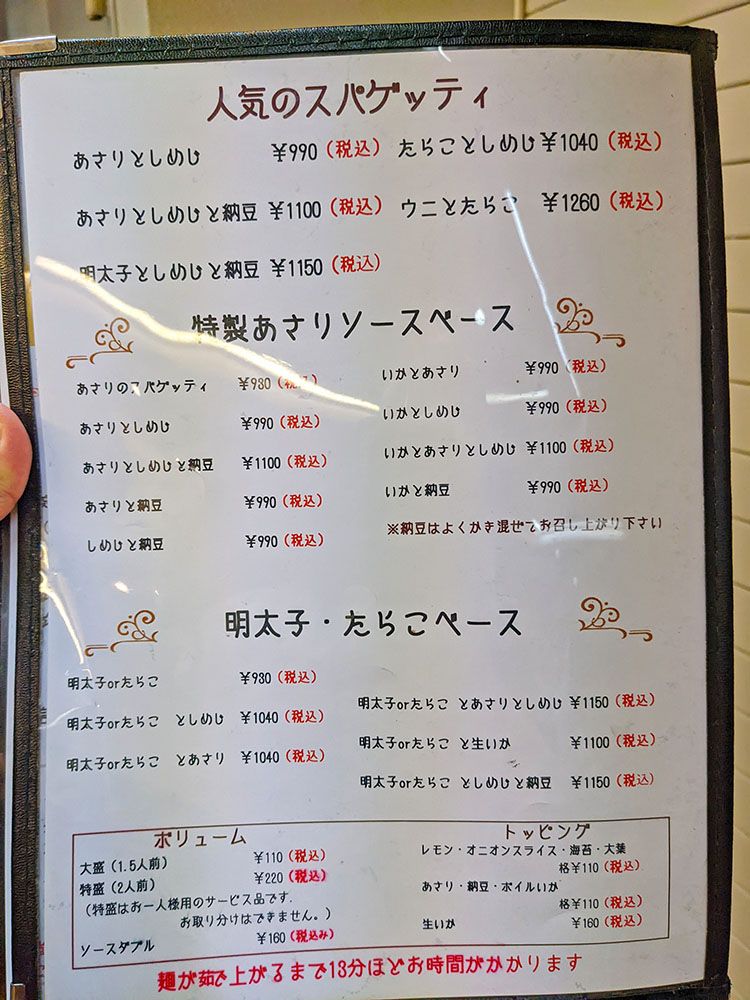 人気のスパゲッティ
あさりとしめじ ¥990(税込)
たらことしめじ ¥1040(税込)
あさりとしめじと納豆 ¥1100(税込)
ウニとたらこ ¥1260(税込)
明太子としめじと納豆 ¥1150(税込)
特製あさりソースベース
あさりのスパゲッティ ¥980(税込)
あさりとしめじ ¥990(税込)
あさりとしめじと納豆 ¥1100(税込)
あさりと納豆 ¥990(税込)
しめじと納豆 ¥990(税込)
いかとあさり ¥990(税込)
いかとしめじ ¥990(税込)
いかとあさりとしめじ ¥1100(税込)
いかと納豆 ¥990(税込)
※納豆はよくかき混ぜてお召し上がり下さい
明太子・たらこベース
明太子orたらこ ¥980(税込)
明太子orたらこ としめじ ¥1040(税込)
明太子orたらこ とあさり ¥1040(税込)
明太子orたらこ とあさりとしめじ ¥1150(税込)
明太子orたらこ と生いか ¥1100(税込)
明太子orたらこ としめじと納豆 ¥1150(税込)
ボリューム
大盛(1.5人前) ¥110(税込)
特盛(2人前) ¥220(税込)
(特盛はお一人様用のサービス品です.
お取り分けはできません。)
ソースダブル ¥160(税込み)
トッピング
レモン・オニオンスライス・海苔・大葉
各¥110(税込)
あさり・納豆・ボイルいか
各¥110(税込)
生いか ¥160(税込)
麺が茹で上がるまで13分ほどお時間がかかります